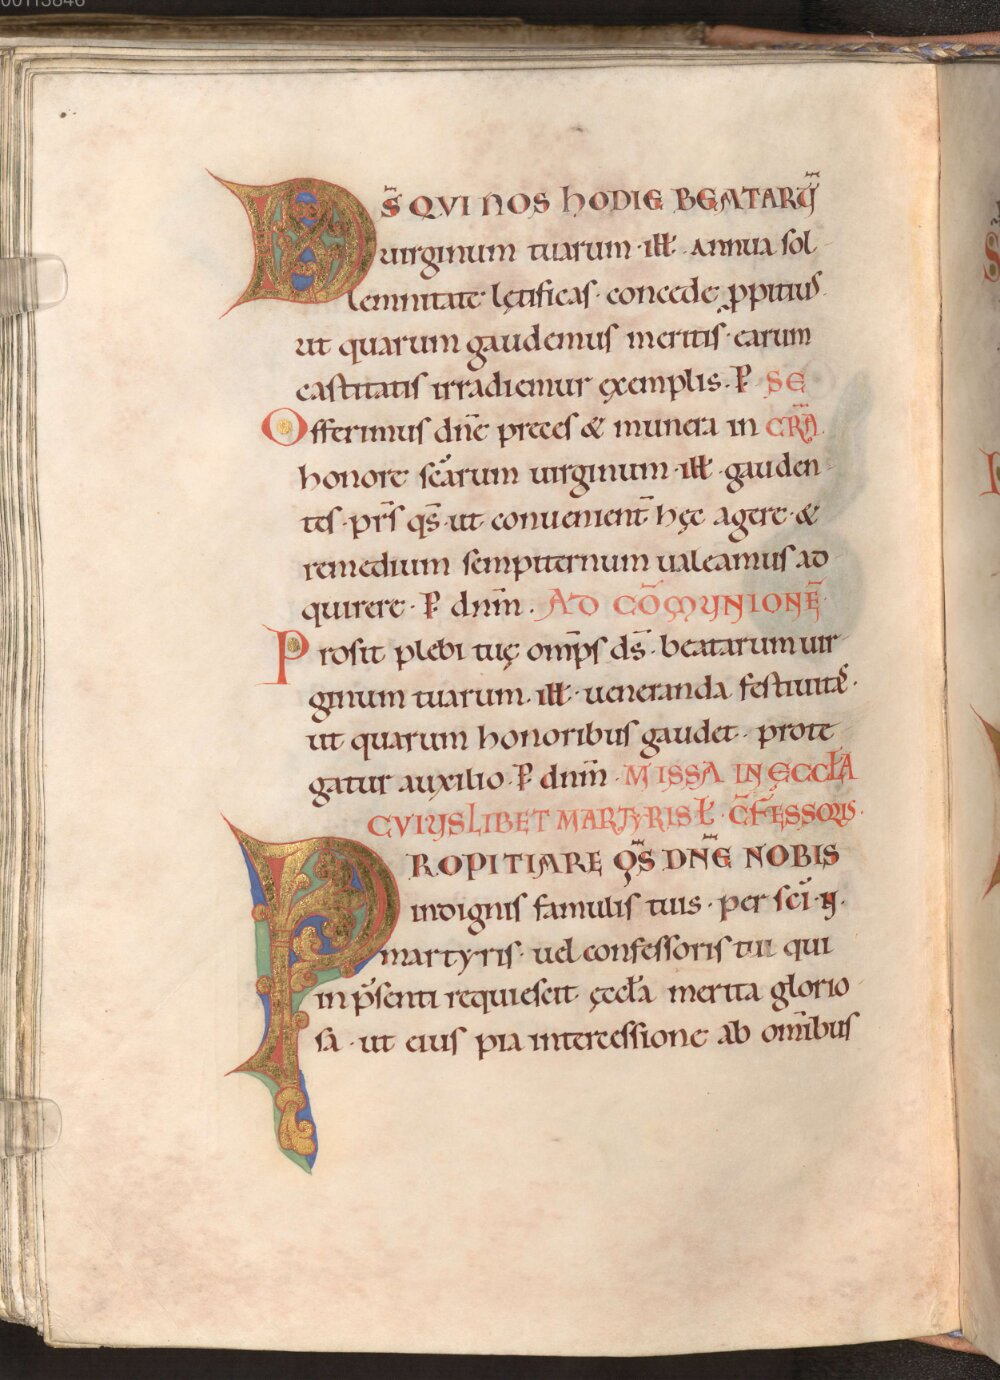 D̅S̅ QVI NOS HODIE BEATARU̅
uirginum tuarum · ill̅ · annua sol
lemnitate lętificas · concede ꝓpitius ·
ut quarum gaudemus meritis · earum
castitatis irradiemur ęxemplis. P̲ SE
Offerimus dn̅e preces & munera in CRA̅
honore sc̅arum uirginum · ill̅ · gauden
tes · pr̅s qs̅ · ut conuenient̅ hęc agere · &
remedium sempiternum ualeamus ad
quirere · P̲ dnm̅ . AD CO̅MUNIONE̅
Prosit plebi tuę om̅ps ds̅ · beatarum uir
ginum tuarum · ill̅ · ueneranda festiuitas ·
ut quarum honoribus gaudet · prote
gatur auxilio · P̲ dnm̅ · MISSA IN ĘCCLA
CVIUSLIBET MARTYRIS Ł C̅FESSORIS ·
PROPITIARE QS̅ DN̅E NOBIS
indignis famulis tuis · per sc̅i · N̅ ·
martyris · uel confessoris tui qui
in p̅senti requiescit ęccl̅a merita glorio
sa · ut eius pia intercessione ab om̅ibus